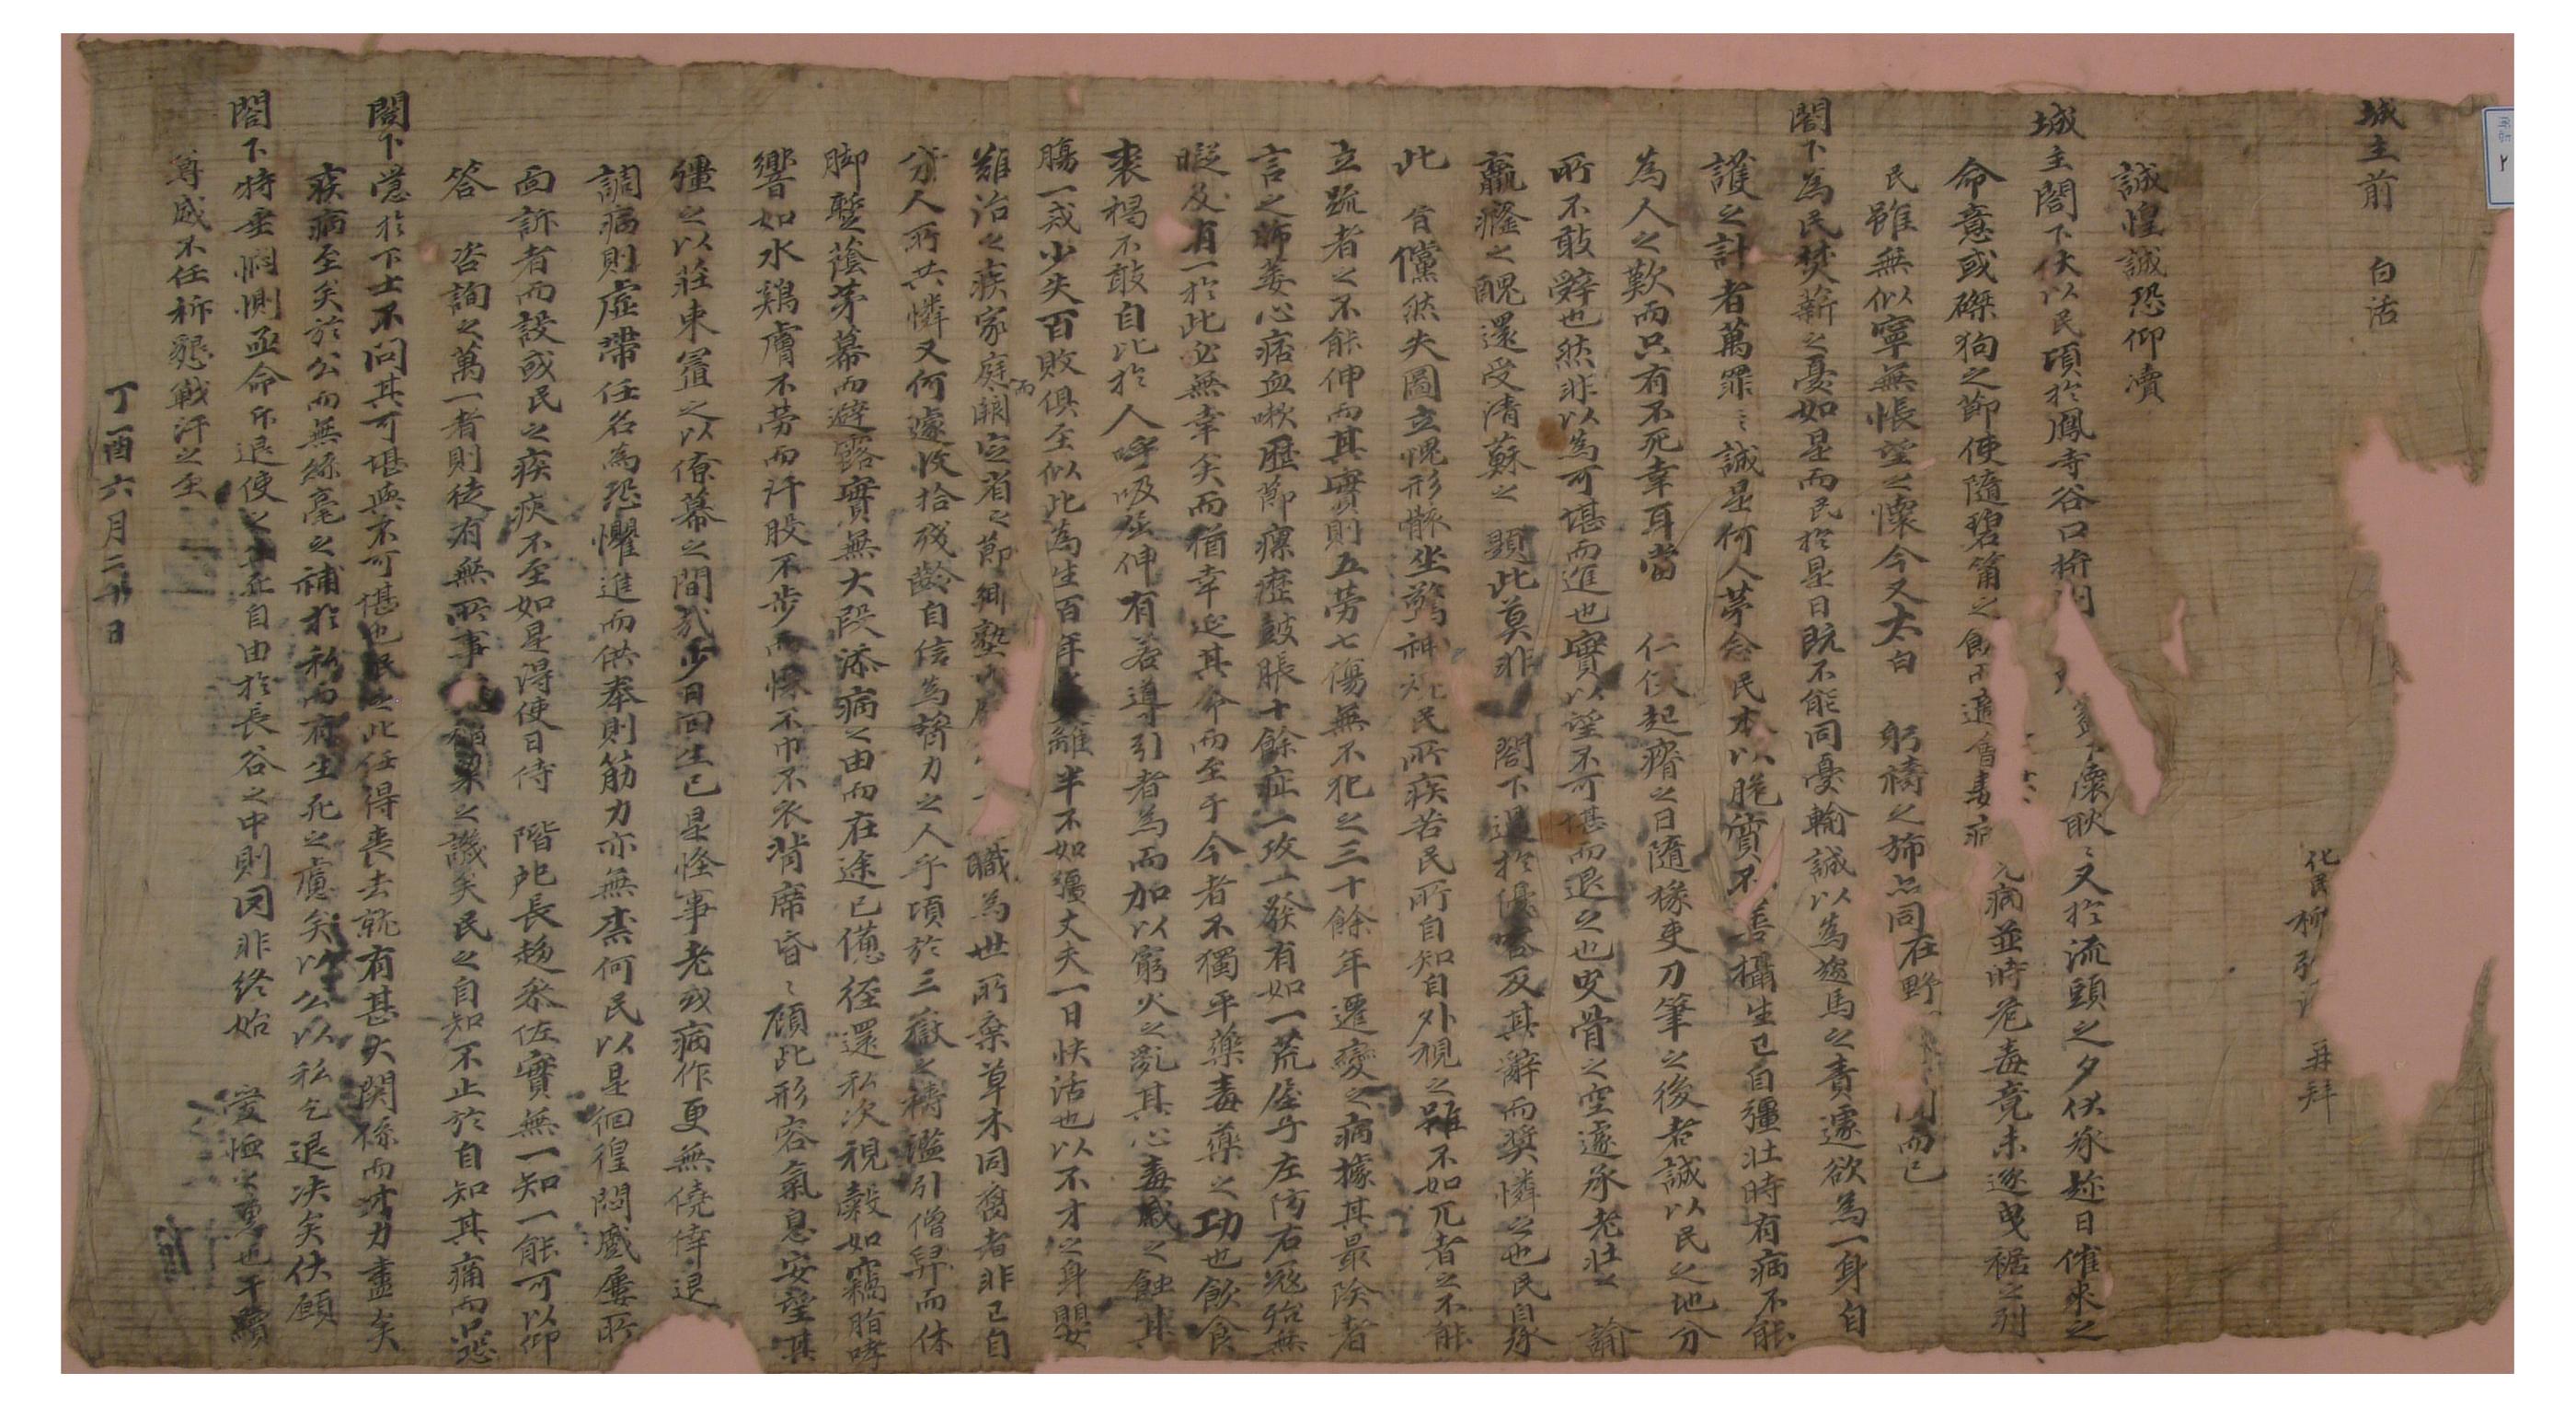 城主前 白活
化民 柳 再拜
誠惶誠恐仰瀆
城主閤下伏以民頃於鳳寺谷口 懷耿〻又於流頭之夕伏承趂日催來之
命意或磔狗之節使隨碧筩之飮 毒 病並時危毒竟未遂曳裾之列
民雖無似寧無悵望之懷今又太白 躬禱之斾亦同在野 而已
閤下爲民焚薪之憂如是而民於是日旣不能同憂輸誠以爲 馬之責遽欲爲一身自
護之計者萬罪〻誠是何人茅念民本以脆質不善攝生已自彊壯時有病不能
爲人之歎而只有不死幸耳當 仁 起瘠之日隨掾吏刀筆之後者誠以民之地分
所不敢辭也然非以爲可堪而進也實以望不可堪而退之也 骨之空遽承老壯之 諭
羸癃之醜還受淸蘇之 題此莫非 閤下過於優 及其辭而奬憐之也民自承
此 旨儻然失圖立愧形骸坐驚神 民所疾苦民所自知自外視之雖不如兀者之不能
立跪者之不能伸而其實則五勞七傷無不犯之三十餘年遷變之病據其最險者
言之 痿心痞血嗽歷節瘰癧鼓脹十餘症一攻一發有如一荒屋乎左防右寇殆無
暇及有一於此必無幸矣而猶幸延其命而至于今者不獨平藥毒藥之功也飮食
裘褐不敢自比於人呼吸屈伸有若導引者爲而加以窮火之亂其心毒慼之蝕其
腸一或少失百敗俱至似此爲生百年 離半不如彊丈夫一日快活也以不才之身嬰
難治之疾家庭而關定省之節鄕塾 職爲世所棄草木同腐者非已自
分人所共憐又何遽收拾殘齡自信爲膂力之人乎頃於三嶽之禱濫引僧舁而休
脚蹔蔭茅幕而避露實無大段添病之由而在途已憊徑還私次視穀如 脂哮
響如水鷄膚不勞而汗股不步而悚不巾不衣背席昏〻顧此形容氣息安望其
彊之以莊束置之以僚幕之間貳少日回生已是怪事老或病作更無僥倖退
調病則虛帶任名爲恐懼進而供奉則筋力亦無柰何民以是徊徨悶蹙屢所
面訴者而設或民之疾疢不至如是得使日侍 階戺長趨參佐實無一知一能可以仰
答 咨詢之萬一者則徒有無所事 粱之譏矣民之自知不止於自知其痛而恐
閤下 於下士不問其可堪與不可堪也民之此任得喪去就有甚大関係而才力盡矣
疾病至矣於公而無絲毫之補於私而有生死之慮矣以公以私乞退决矣伏願
閤下特垂惻惻亟命斥退使之 自由於長谷之中則罔非終始 愛恤之 也干黷
尊威不任祈懇戰汗之至
丁酉六月二十日